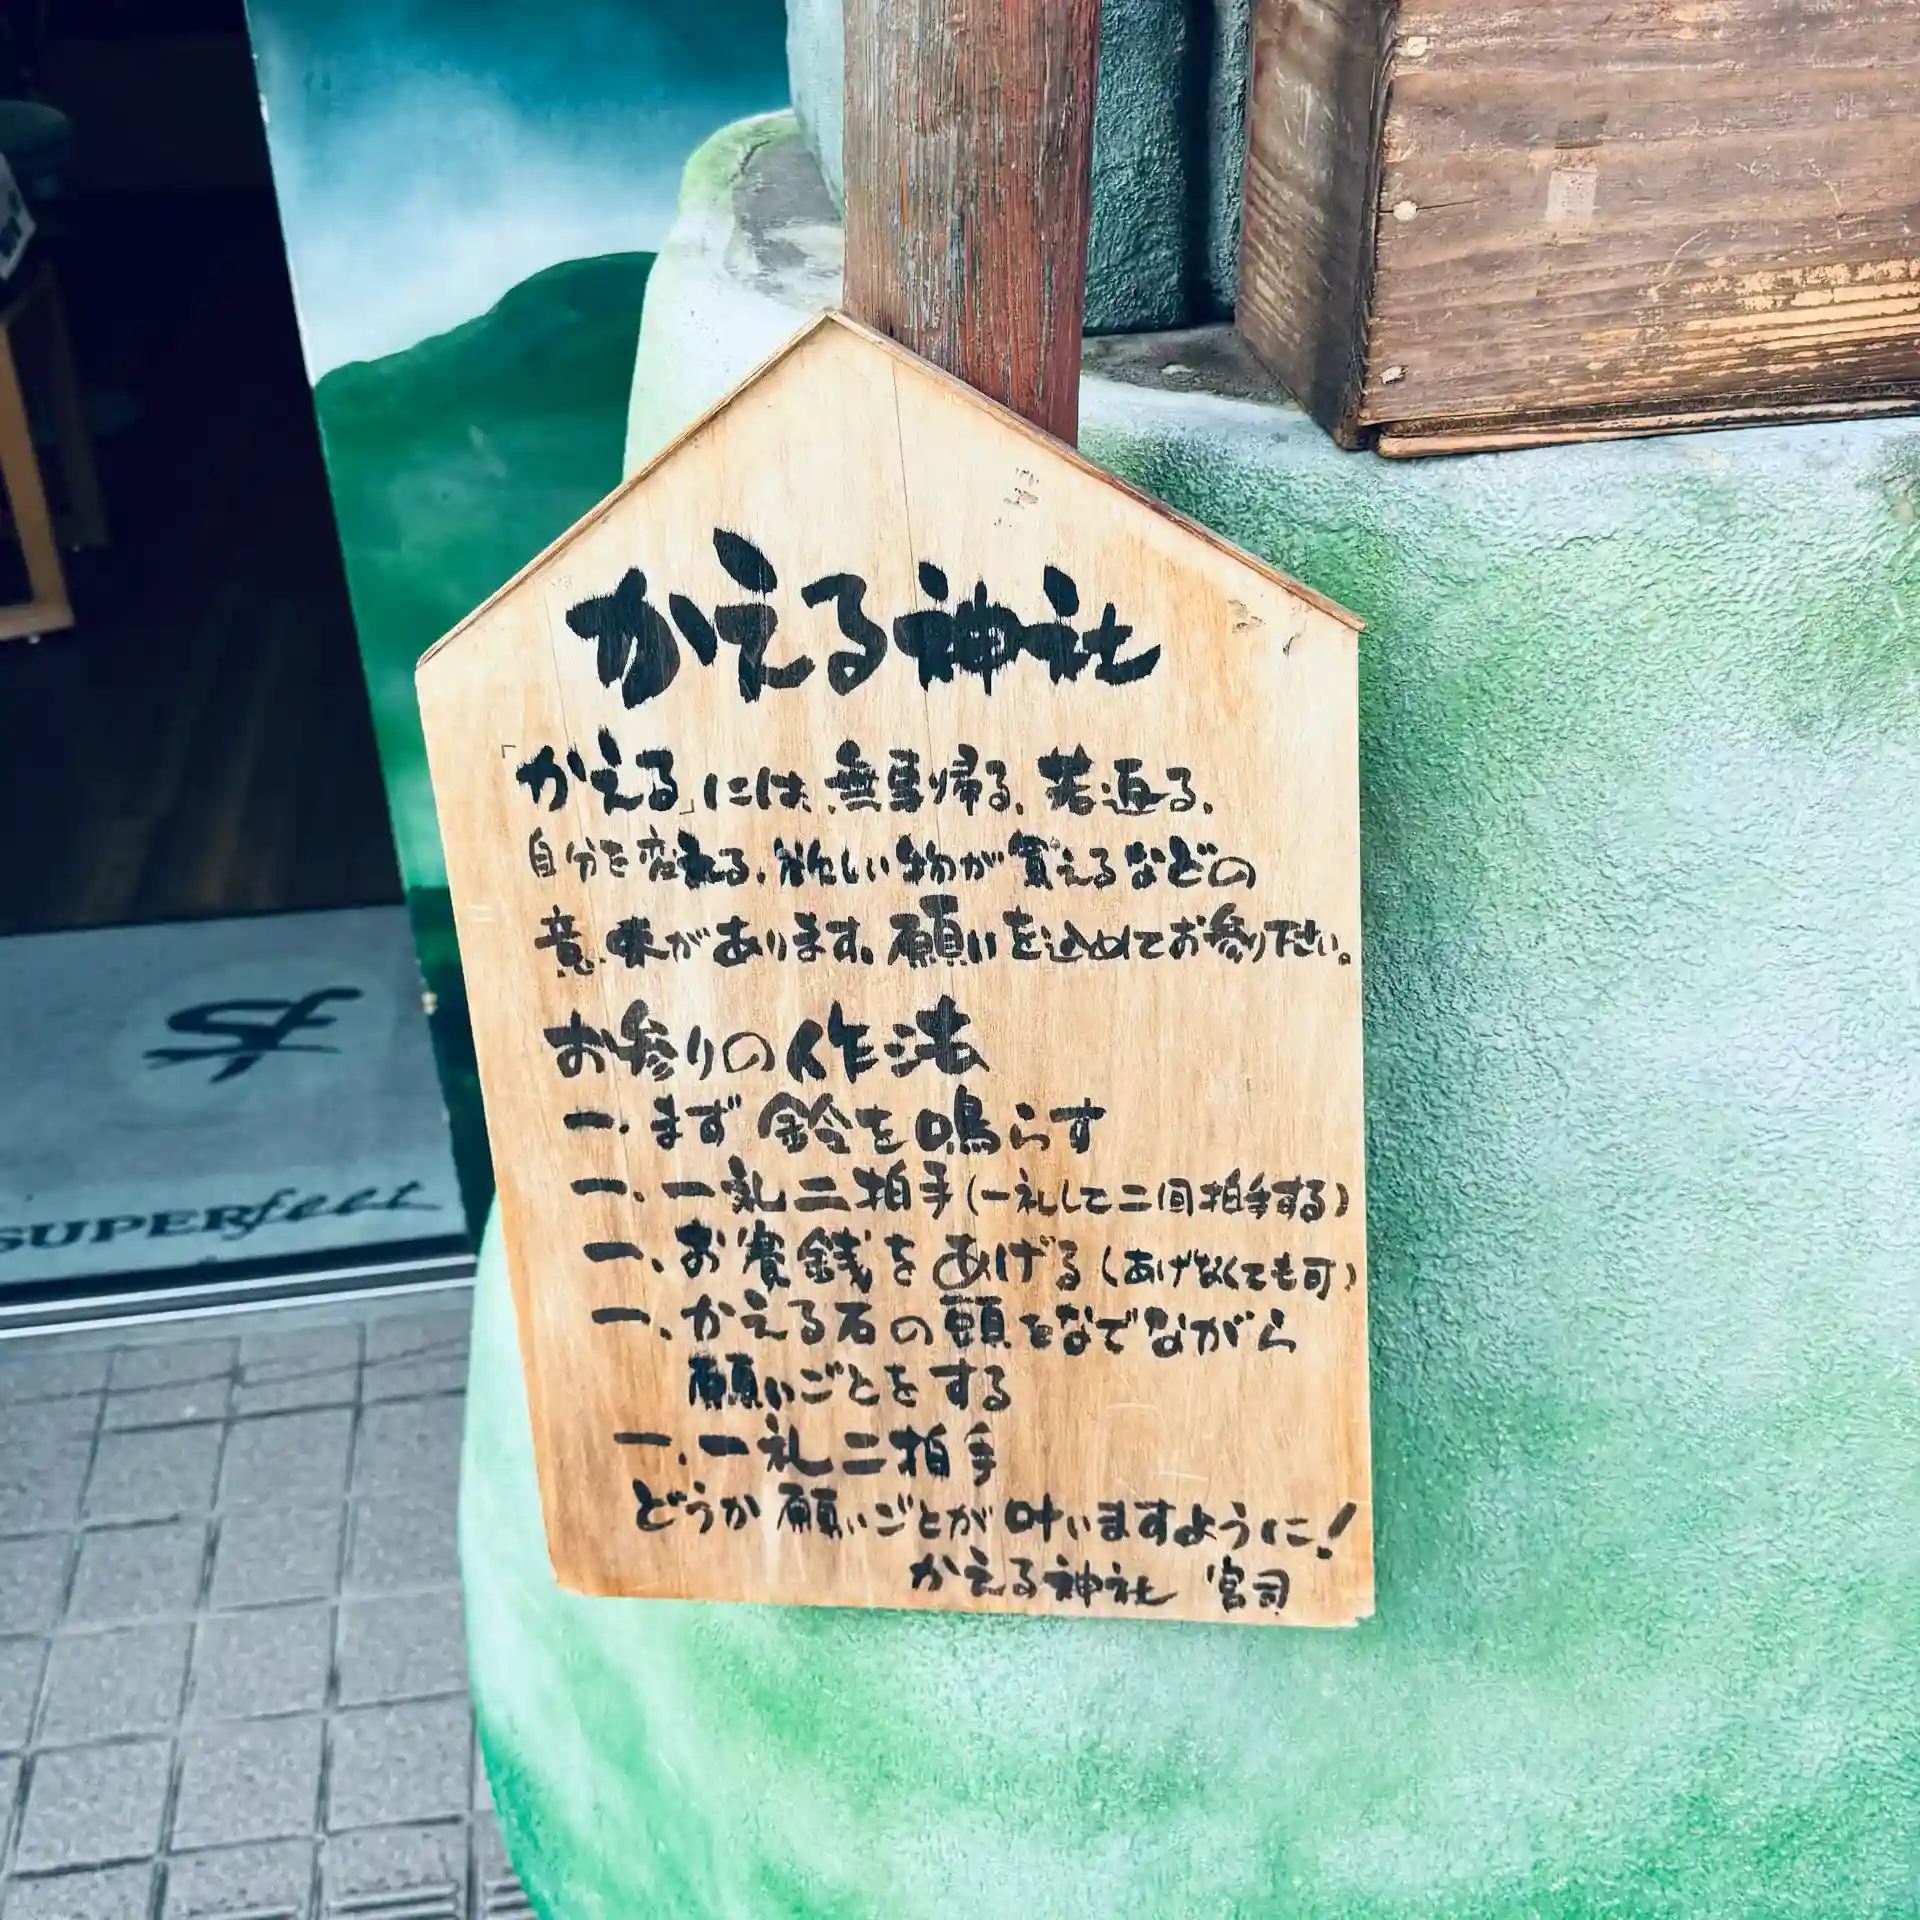 かえる神社
「かえる」には、無事帰る、若返る、
自分を変える、欲しい物が買えるなどの
意味があります。願いを込めてお参り下さい。
お参りの作法
一、まず鈴を鳴らす
一、一礼二拍手(一礼して二回拍手する)
一、お賽銭をあげる(あげなくても可)
一、かえる石の頭をなでながら
願いごとをする
一、一礼二拍手
どうか願いごとが叶いますように!
かえる神社 宮司
sf
SUPERfeet